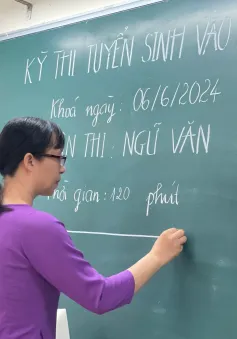 KỲ THI TUYỂN SINH VÀO
Khoá ngày: 06/6/2024
THI: NGỮ VĂN
gian: 120 phút